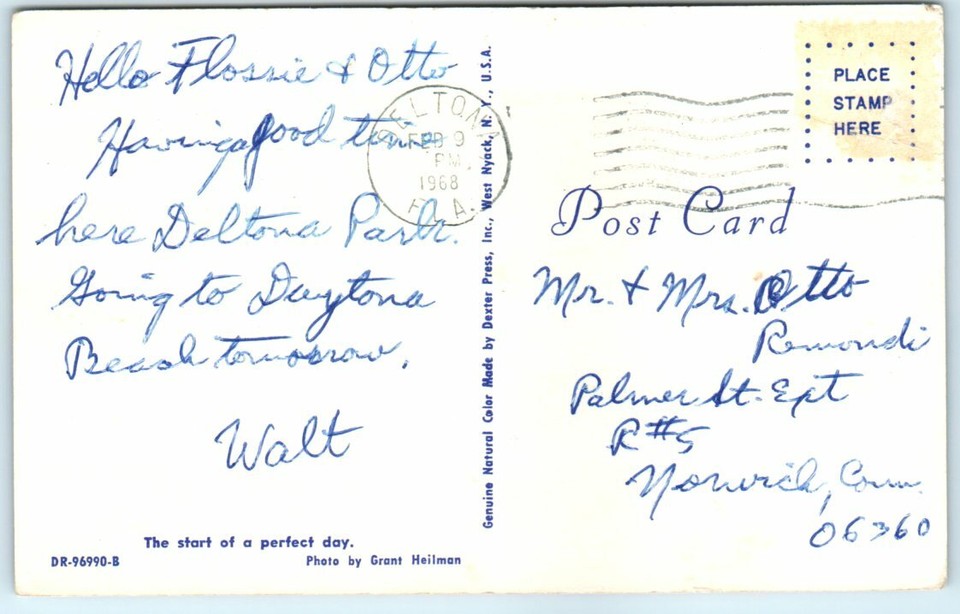 Hello Flossie & Otto
Having a good time
here Deltona Park.
Going to Daytona
Beach tomorrow.
Walt
The start of a perfect day.
DR-96990-B
Photo by Grant Heilman
Genuine Natural Color Made by Dexter Press, Inc., West Nyack, N. Y., U.S.A.
DELTONA
FEB 9
PM
1968
FLA.
PLACE
STAMP
HERE
Post Card
Mr. & Mrs. Otto
Remondi
Palmer St. Ext
R#5
Norwich, Conn.
06360